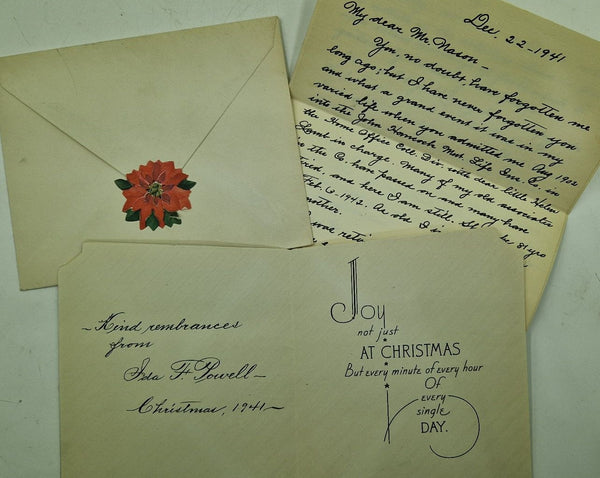 Dec. 22-1941
My dear Mr. Nason-
You, no doubt, have forgotten me
long ago; but I have never forgotten you
and what a grand event it was in my
varied life when you admitted me Aug 1902
into the John Hancock Mut. Life Ins. Co. in
the Home Office Coll. Div. with dear little Helen
Lamb in charge. Many of my old associates
the Co. have passed on and many have
and here I am still.
be 81 yrs
Feb. 6, 1942. As old
mother.
was
~Kind rembrances
from
Ida F. Powell~
~Christmas, 1941~
Joy
not just
AT CHRISTMAS
But every minute of every hour
OF
every
single
DAY.